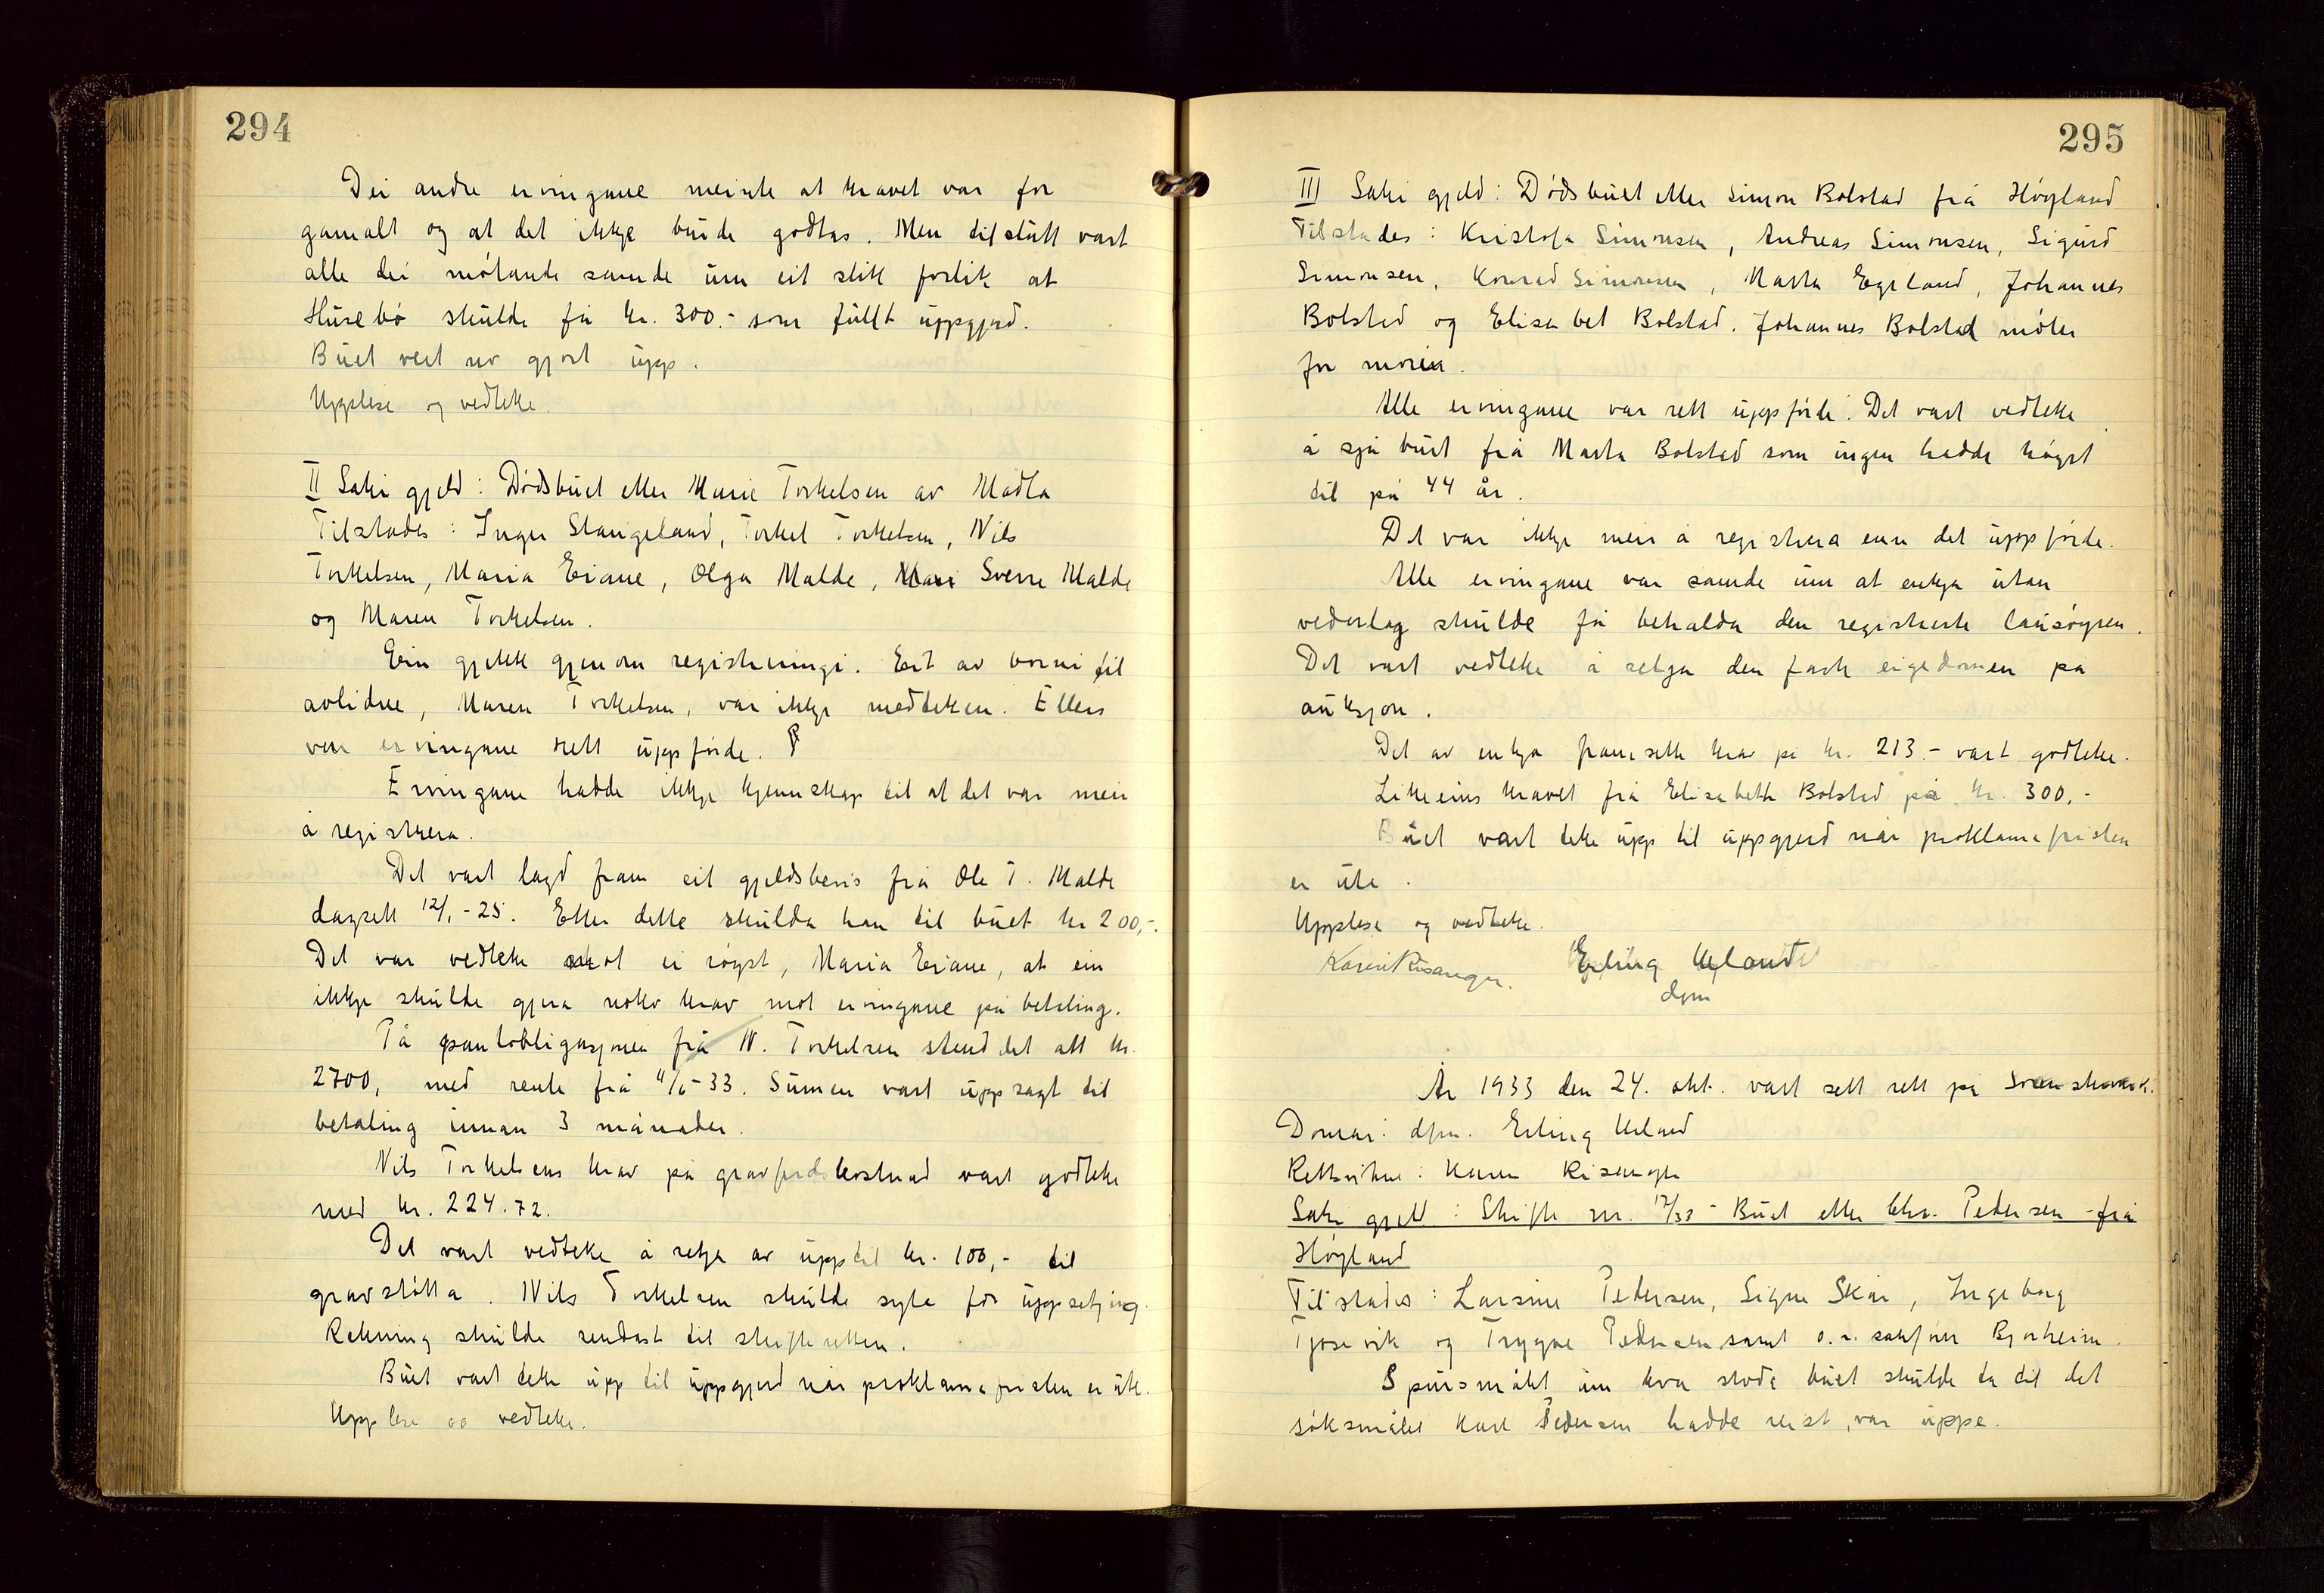 294
Dei andre ervingane meinte at kravet var for
gamalt og at det ikkje burde godtas. Men tilslutt vart
alle dei møtande samde um eit slikt forlik at
Husebø skulde få kr. 300.- som fullt uppgjerd.
Buet vert no gjort upp.
Upplese og vedteke.
II Saki gjeld: Dødsbuet etter Marie Torkelsen av Madla
Tilstades: Inger Stangeland, Torkel Torkelsen, Nils
Torkelsen, Maria Eriane, Olga Malde, Sverre Malde
og Maren Torkelsen.
Ein gjekk gjenom registreringi. Eit av borni til
avlidne, Maren Torkelsen, var ikkje medteken. Ellers
var ervingane rett uppførde.
Ervingane hadde ikkje kjennskap til at det var meir
å registrera.
Det vart lagd fram eit gjeldsbevis frå Ole T. Malde
dagsett 12/1-25. Etter dette skulda han til buet kr 200,-.
Det var vedteke mot ei røyst, Maria Eriane, at ein
ikkje skulde gjera noko krav mot ervingane på betaling.
På pantobligasjonen frå N. Torkelsen stend det att kr.
2700, med rente frå 11/6-33. Sumen vart uppsagt til
betaling innan 3 månader.
Nils Torkelsens krav på gravferdskostnad vart godteke
med kr. 224.72.
Det vart vedteke å setja av upptil kr. 100,- til
gravstøtta. Nils Torkelsen skulde syta for uppsetjing.
Rekning skulde sendast til skifteretten.
Buet vart teke upp til uppgjerd når proklamafristen er ute.
Upplese og vedteke.
295
III Saki gjeld: Dødsbuet etter Simon Bolstad frå Høyland
Tilstades: Kristofa Simonsen, Andreas Simonsen, Sigurd
Simonsen, Konrad Simonsen, Marta Egeland, Johannes
Bolstad og Elisabet Bolstad. Johannes Bolstad møter
for
Alle ervingane var rett uppførde. Det vart vedteke
å sjå burt frå Marta Bolstad som ingen hadde høyrt
til på 44 år.
Det var ikkje meir å registrera enn det uppførde.
Alle ervingane var samde um at enkja utan
vederlag skulde få behalda den registrerte lausøyren.
Det vart vedteke å selja den faste eigedomen på
auksjon.
Det av enkja framsette krav på kr. 213.- vart godteke.
Likeeins kravet frå Elisabeth Bolstad på kr. 300,-
Buet vart teke upp til uppgjerd når proklamafristen
er ute.
Upplese og vedteke.
Karen Risanger. Erling Ueland
dfm
År 1933 den 24. okt. vart sett rett på
Domar: dfm. Erling Ueland
Rettsvitne: Karen Risanger
Saki gjeld: Skifte nr. 17/33 - Buet etter Chr. Pedersen - frå
Høyland
Tilstades: Larsine Pedersen, Signe Skår, Ingeborg
Tjosevik og Trygve Pedersen samt o.r. sakførar Bjorheim.
Spursmålet um kva stode buet skulde ta til det
søksmålet Karl Pedersen hadde reist, var uppe.